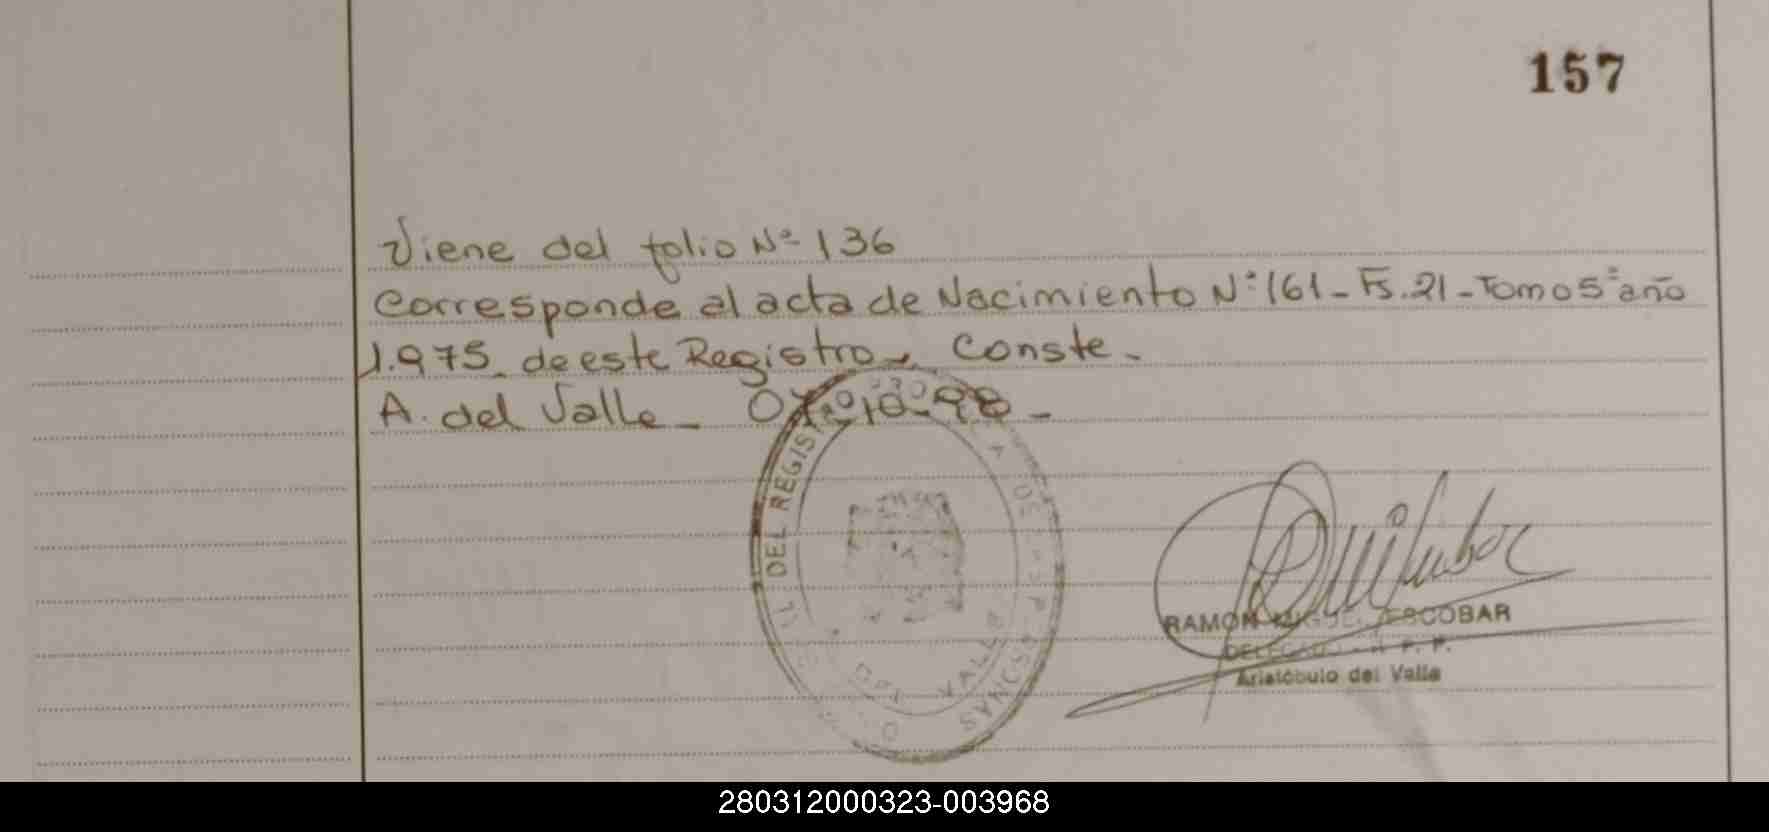 157
Viene del folio Nº 136
Corresponde al acta de Nacimiento Nº 161 - Fs. 21 - Tomo 5º año
1.975 de este Registro, Conste -
A. del Valle - 10-98 -
DEL REGIST
DE
VALLE
MISIONES
RAMON MIGUEL ESCOBAR
DELEGADO - R. P. P.
Aristóbulo del Valle
280312000323-003968